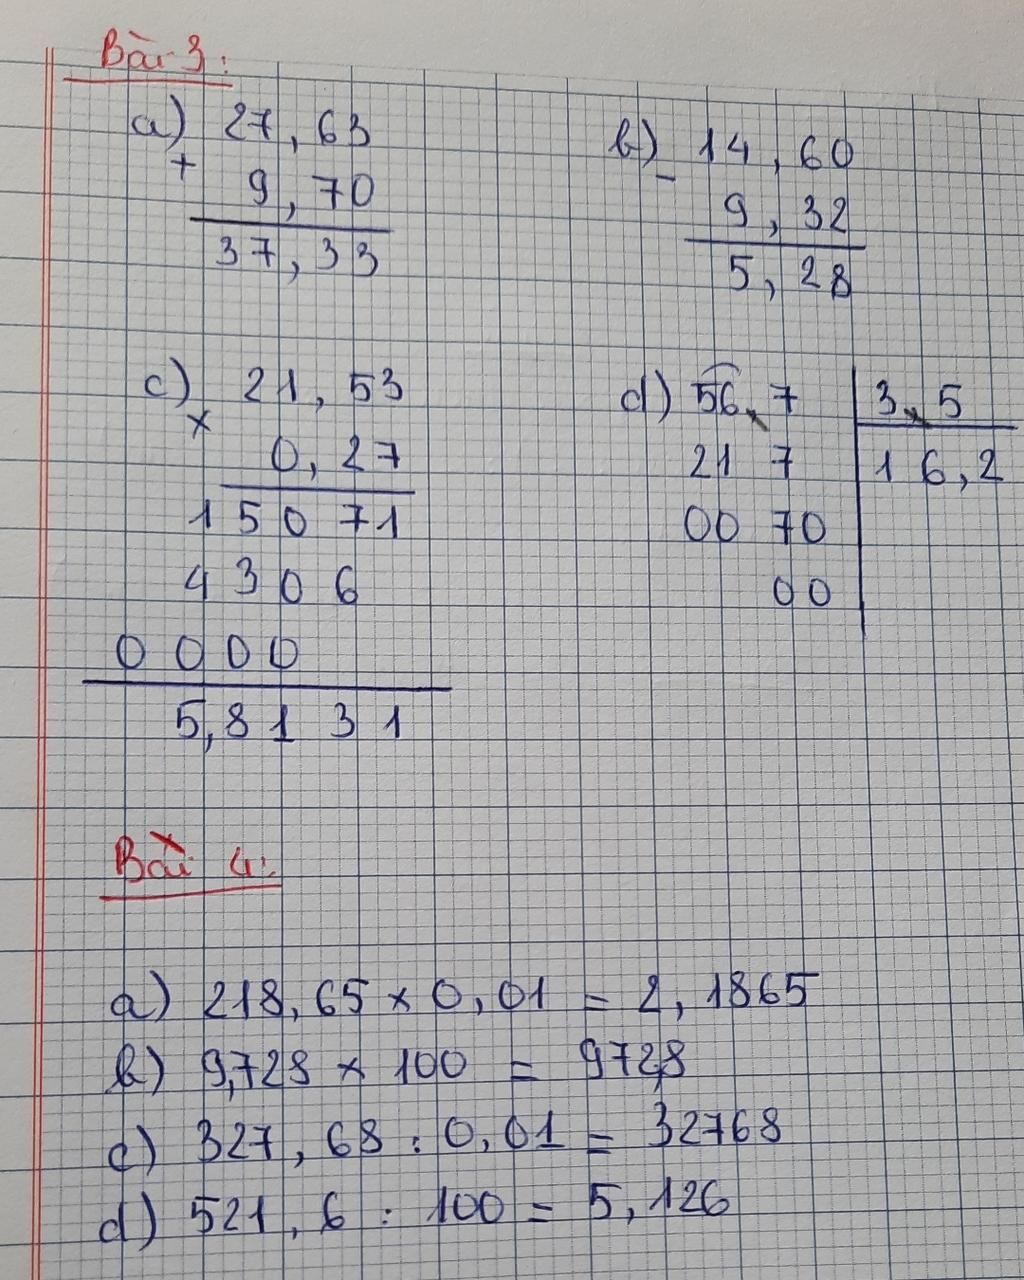 Bài 3:
a) 27,63
+ 9,70
37,33
b) 14,60
- 9,32
5,28
c) 21,53
x 0,27
15071
4306
0000
5,8131
d) 56,7 3,5
217 16,2
0070
00
Bài 4:
a) 218,65 x 0,01 = 2,1865
b) 9,728 x 100 = 972,8
c) 327,68 : 0,01 = 32768
d) 521,6 : 100 = 5,126